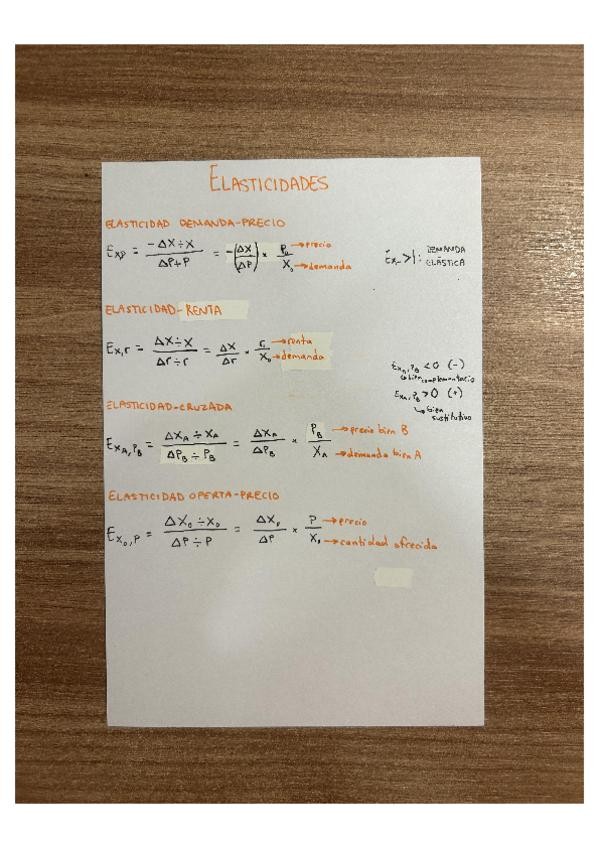 ELASTICIDADES
ELASTICIDAD DEMANDA-PRECIO
Exp = -ΔX÷X / ΔP÷P = -(ΔX/ΔP) × P₀/X₀ → precio → demanda
Ex,- >1: DEMANDA ELÁSTICA
ELASTICIDAD-RENTA
Ex,r = ΔX÷X / Δr÷r = ΔX/Δr × r₀/X₀ → renta → demanda
ExA,PB <0 (-)
↳ bien complementario
ExA,PB >0 (+)
↳ bien sustitutivo
ELASTICIDAD-CRUZADA
ExA,PB = ΔXA÷XA / ΔPB÷PB = ΔXA/ΔPB × PB/XA → precio bien B → demanda bien A
ELASTICIDAD OFERTA-PRECIO
Ex₀,P = ΔX₀÷X₀ / ΔP÷P = ΔX₀/ΔP × P/X₀ → precio → cantidad ofrecida